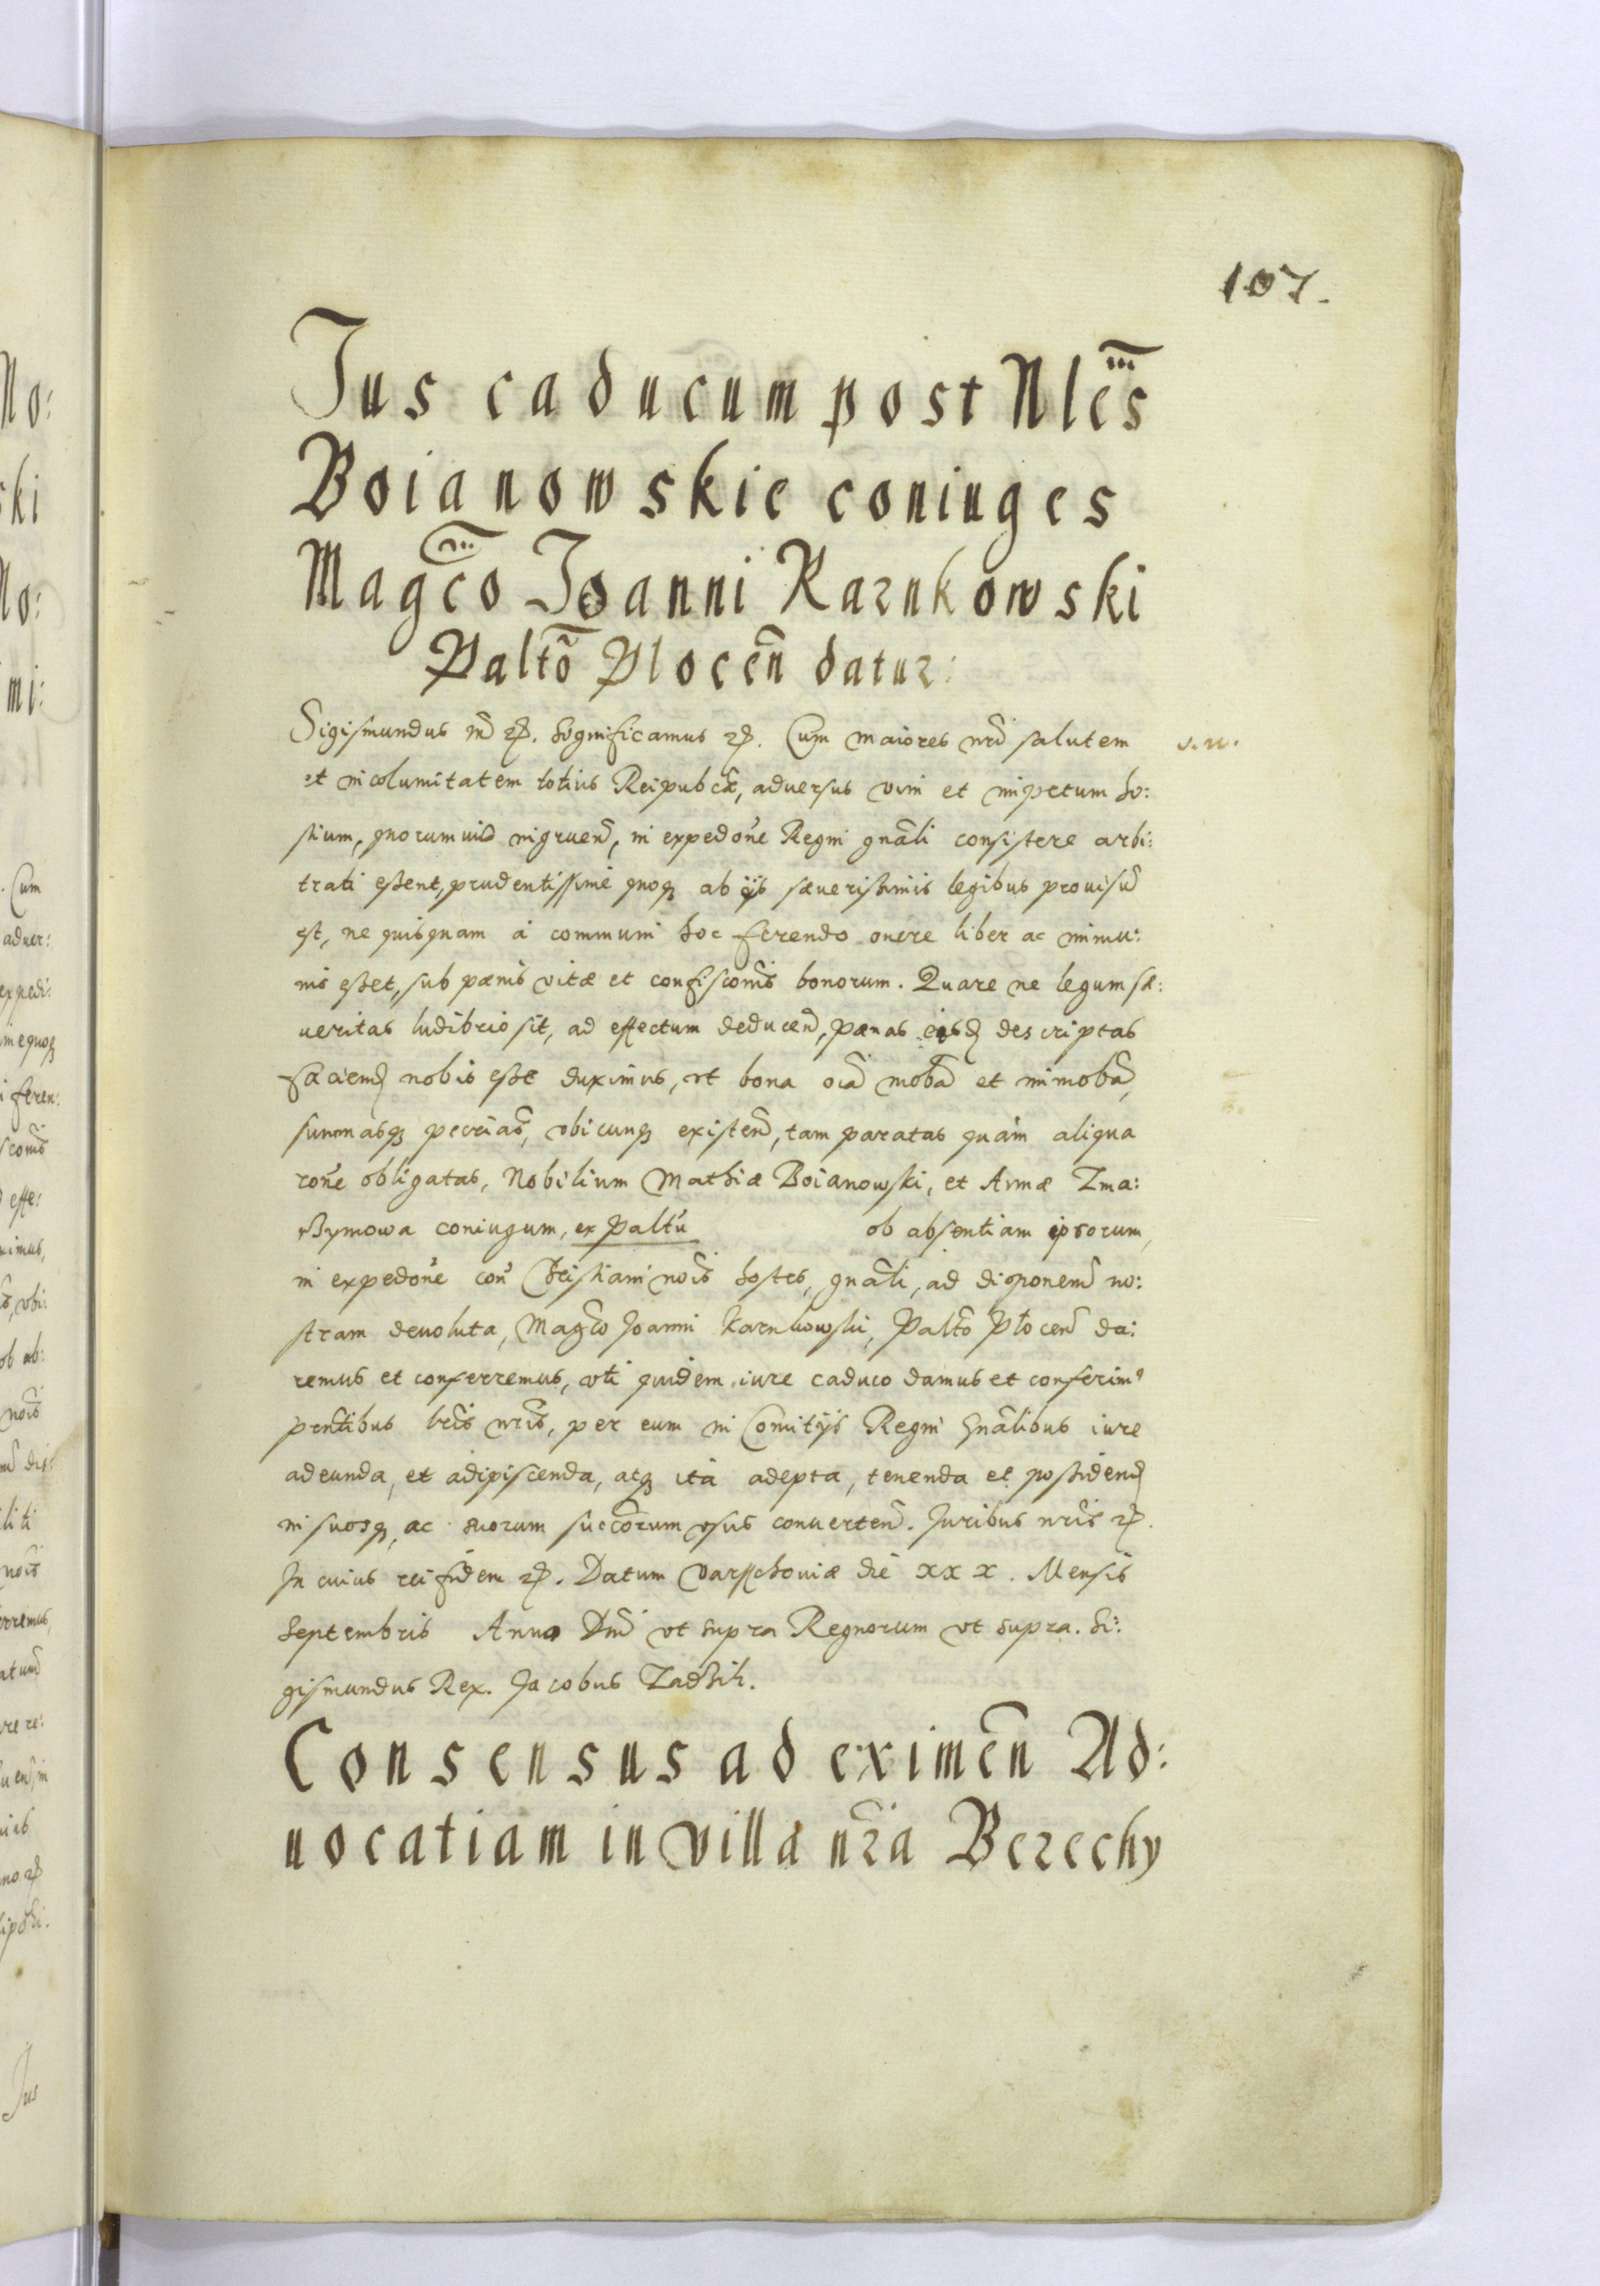 107.
Jus caducum post Nles
Boianowskie coniuges
Magco Joanni Karnkowski
Palto Plocen datur:
Sigismundus m̃ ꝛc. Significamus ꝛc. Cum maiores nr̃i salutem
v. w.
et incolumitatem totius Reipubcæ, aduersus vim et impetum ho:
stium, ingruen̄, in expedoñe Regni gnãli consistere arbi:
trati essent, prudentissime quoqꝫ ab ijs sæuerissimis legibus prouisũ
est, ne quisquam à communi hoc ferendo onere liber ac immu:
nis esset, sub pænis vitæ et confiscoñis bonorum. Quare ne legum sæ:
ueritas ludibrio sit, ad effectum deducen̄, pænas eisd̄ descriptas
faciend̄ nobis esse duximus, vt bona oĩa mobã et immobã,
summasqꝫ pecũias, vbicunqꝫ existen̄, tam paratas quàm aliqua
roñe obligatas, Nobilium Mathiæ Boianowski, et Annæ Zma:
rszymowa coniugum, ex Paltũ ob absentiam ipsorum,
in expedoñe con̄ Christiani nois̃ hostes, gnãli, ad disponem̃ no:
stram deuoluta, Magco Joanni Karnkowski, Palto Plocen̄ da:
remus et conferremus, vti quidem iure caduco damus et conferim9
pñtibus lr̃is nr̃is, per eum in Comitijs Regni Gnãlibus iure
adeunda, et adipiscenda, atqꝫ ità adepta, tenenda et possidend̄
in suosqꝫ, ac suorum succõrum vsus conuerten̄. Juribus nr̃is ꝛc.
In cuius rei fidem ꝛc. Datum Varsschouiæ die XXX. Mensis
Septembris Anno Dñi vt supra Regnorum vt supra. Si:
gismundus Rex. Jacobus Zadzik.
Consensus ad eximen̄ Ad:
uocatiam in villa nr̃a Berechy